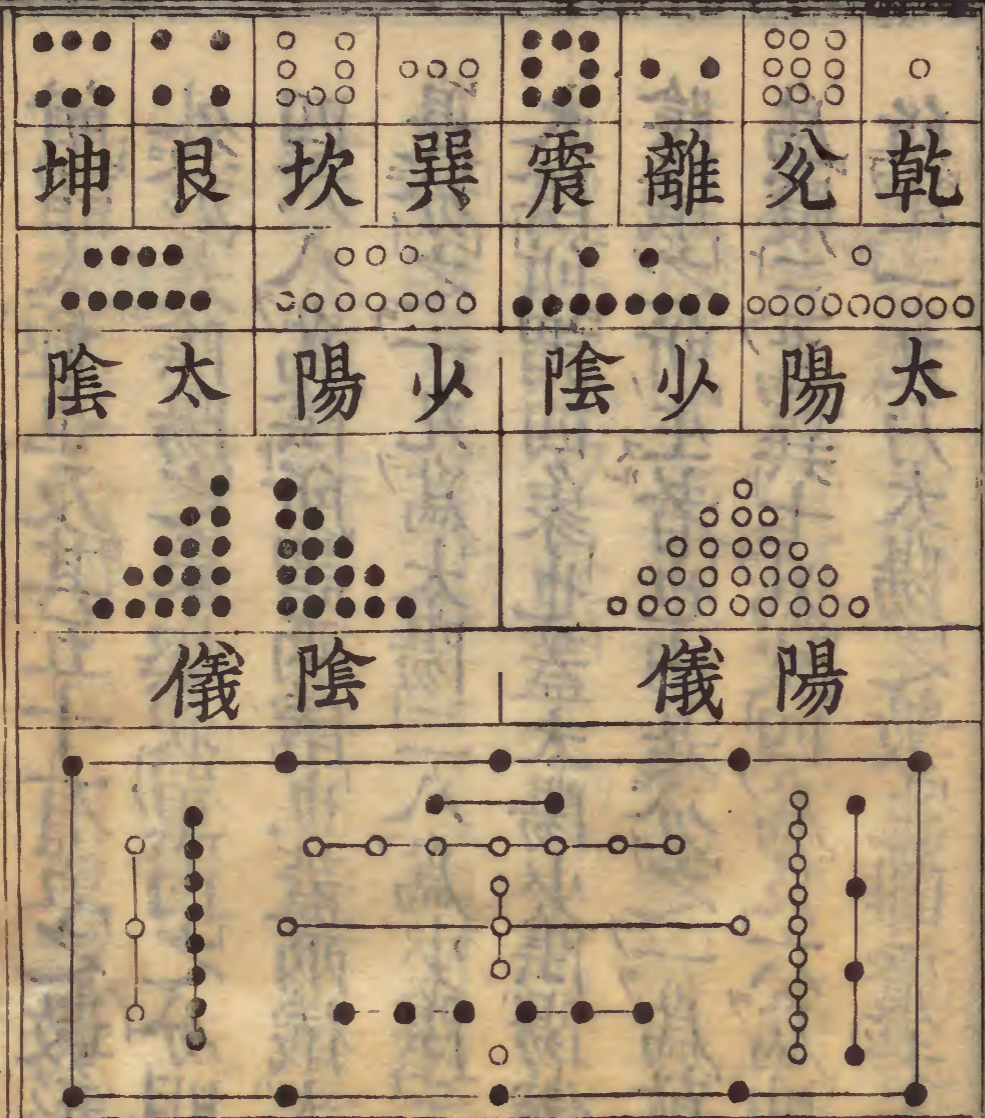 乾兊離震巽坎艮坤
太陽少陰少陽太陰
陽儀陰儀